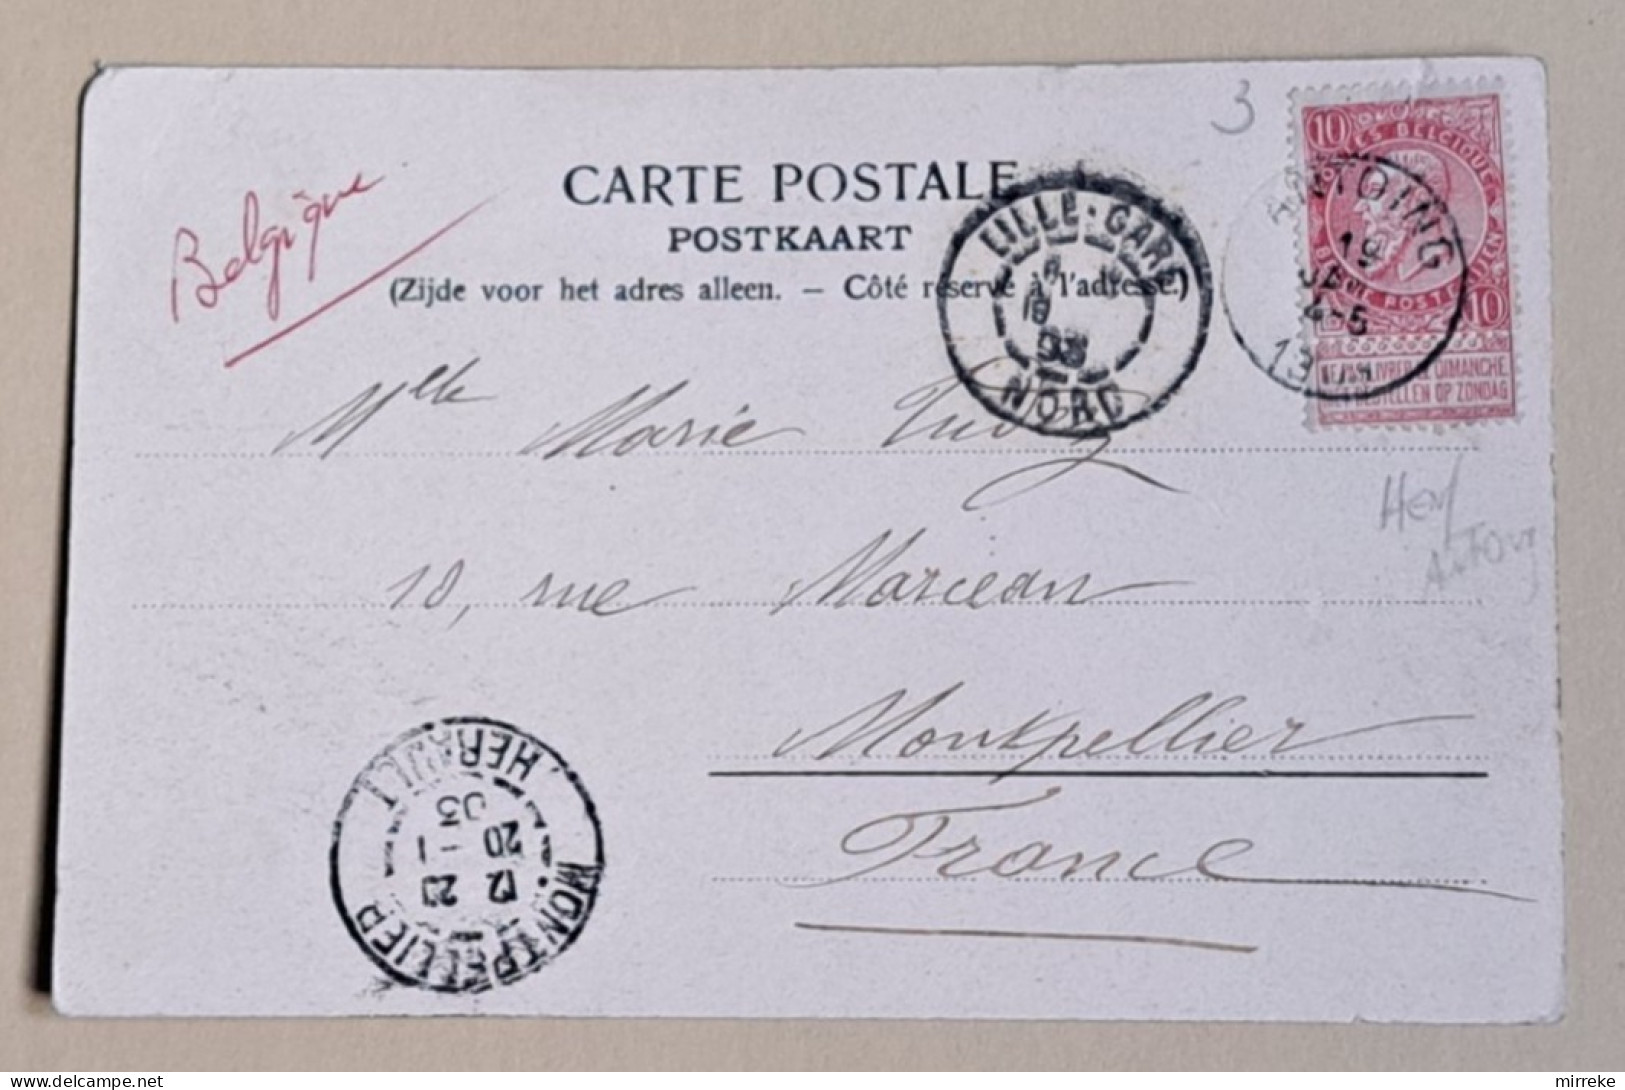 3
CARTE POSTALE
POSTKAART
(Zijde voor het adres alleen. — Côté réservé à l'adresse.)
Belgique
LILLE-GARE
NORD
10
10
POSTES BELGIQUE
ANTOING
19
JAN
4-5
10
NE PAS LIVRER LE DIMANCHE
NIET BESTELLEN OP ZONDAG
Mlle Marie
10, rue Marceau
Montpellier
France
MONTPELLIER
12 20
20 - 1
03
HERAULT
mirreke